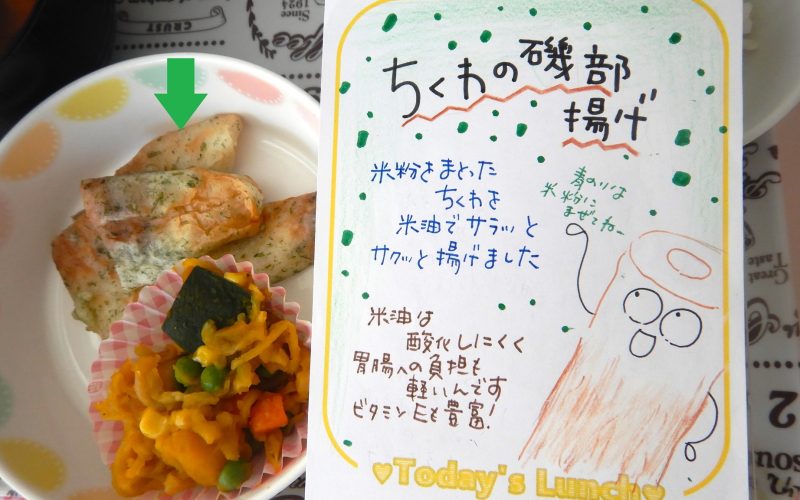 ちくわの磯部
揚げ
米粉をまとった
ちくわを
米油でサラッと
サクッと揚げました
青のりは
米粉に
まぜてねー
米油は
酸化しにくく
胃腸への負担も
軽いんです
ビタミンEも豊富!
♥Today's Lunch♥
Since
1924
CRUST
Great
Taste
2